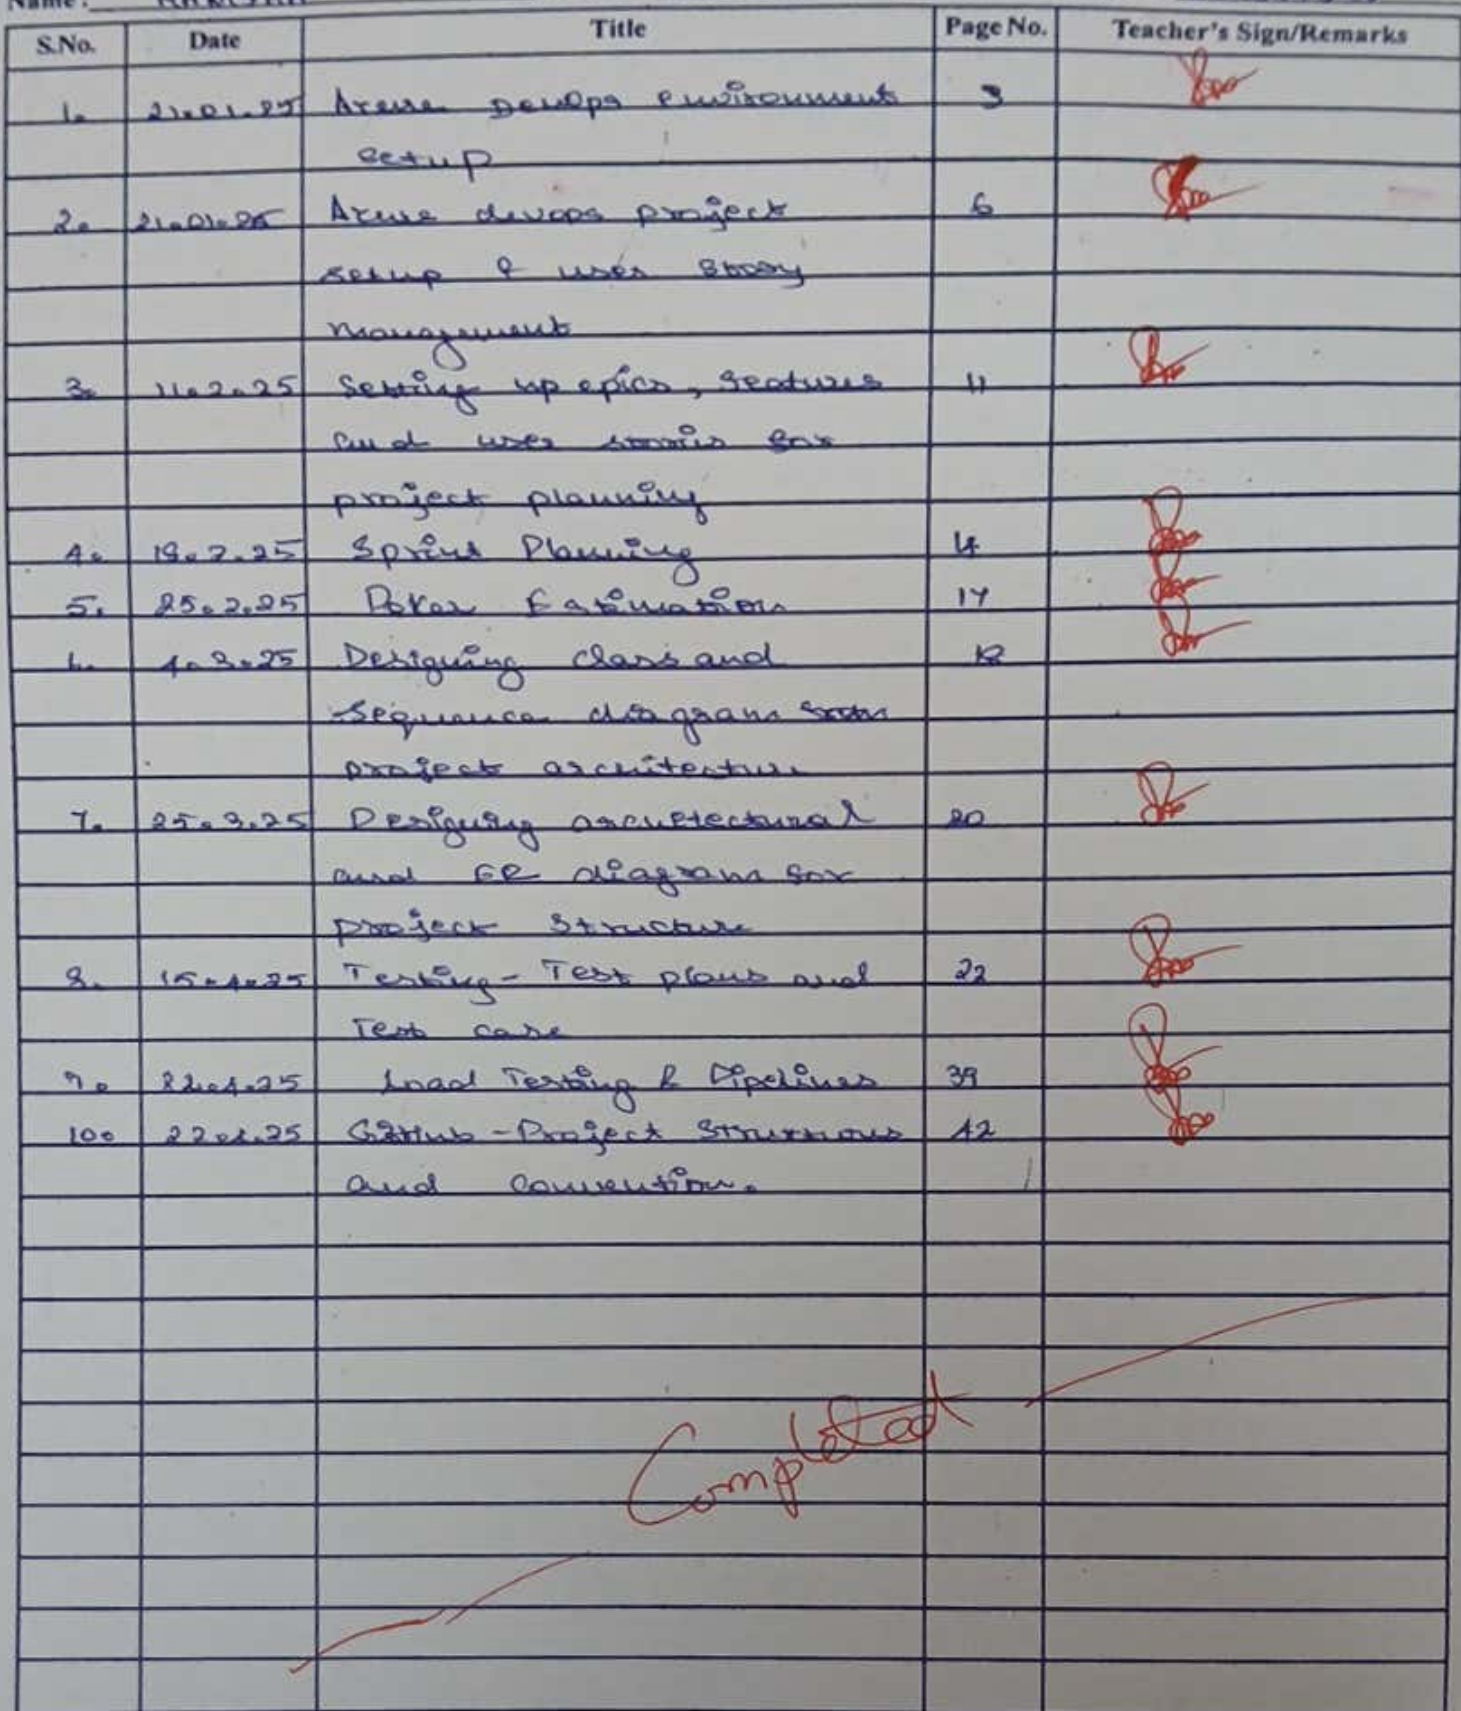 Name :
S.No. Date Title Page No. Teacher's Sign/Remarks
1. 21.01.25 Azure DevOps environment 3
setup
2. 21.01.25 Azure devops project 6
setup & user story
management
3. 11.2.25 Setting up epics, features 11
and user stories for
project planning
4. 18.2.25 Sprint Planning 14
5. 25.2.25 Poker Estimation 17
6. 4.3.25 Designing class and 18
sequence diagram
project architecture
7. 25.3.25 Designing architectural 20
and ER diagram for
project structure
8. 15.4.25 Testing - Test plans and 22
Test case
9. 22.4.25 Load Testing & Pipelines 39
10. 22.4.25 GitHub - Project 42
and convention.
Completed